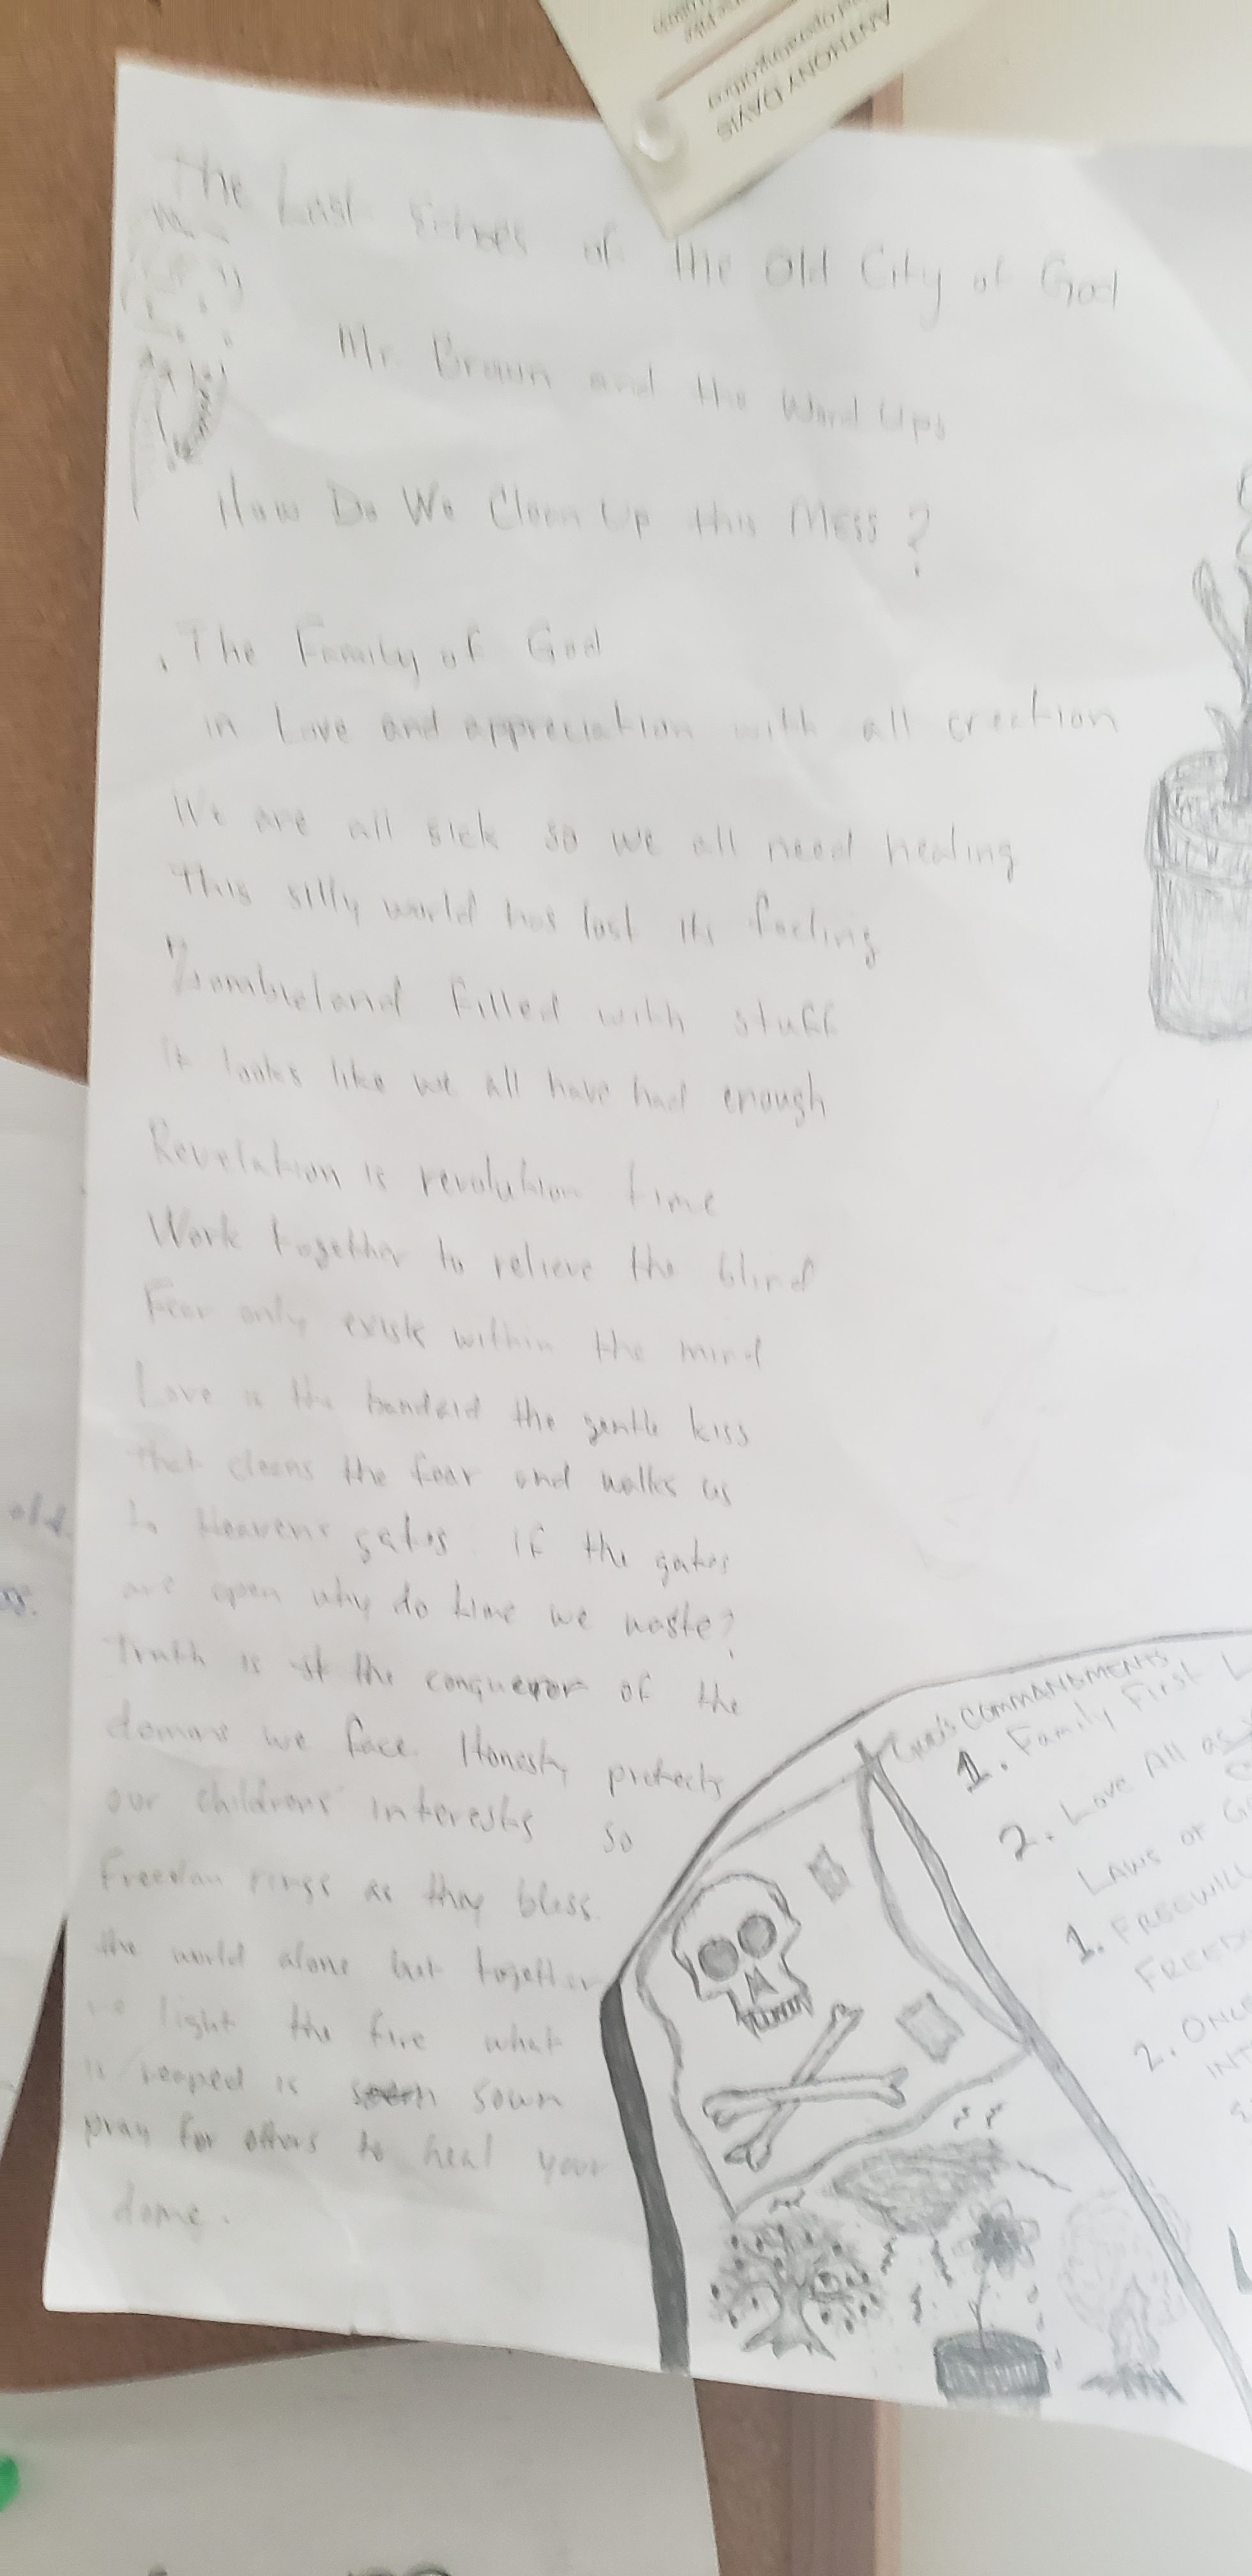 The Last Echoes of the Old City of God
Mr. Brown and the Word Ups
How Do We Clean Up this Mess?
The Family of God
in Love and appreciation with all creation
We are all sick so we all need healing
This silly world has lost its feeling
Zombieland filled with stuff
it looks like we all have had enough
Revelation is revolution time
Work together to relieve the blind
Fear only exists within the mind
Love is the bandaid the gentle kiss
that cleans the fear and walks us
to Heavens gates. If the gates
are open why do time we waste?
Truth is the conqueror of the
demons we face. Honesty protects
our childrens' interests so
Freedom rings as they bless
the world alone but together
we light the fire what
is reaped is sown
pray for others to heal your
dome.
God's COMMANDMENTS
1. Family First
2. Love All as
LAWS OF
1. FREEWILL
2. ONCE
ANTHONY DAVIS
old.